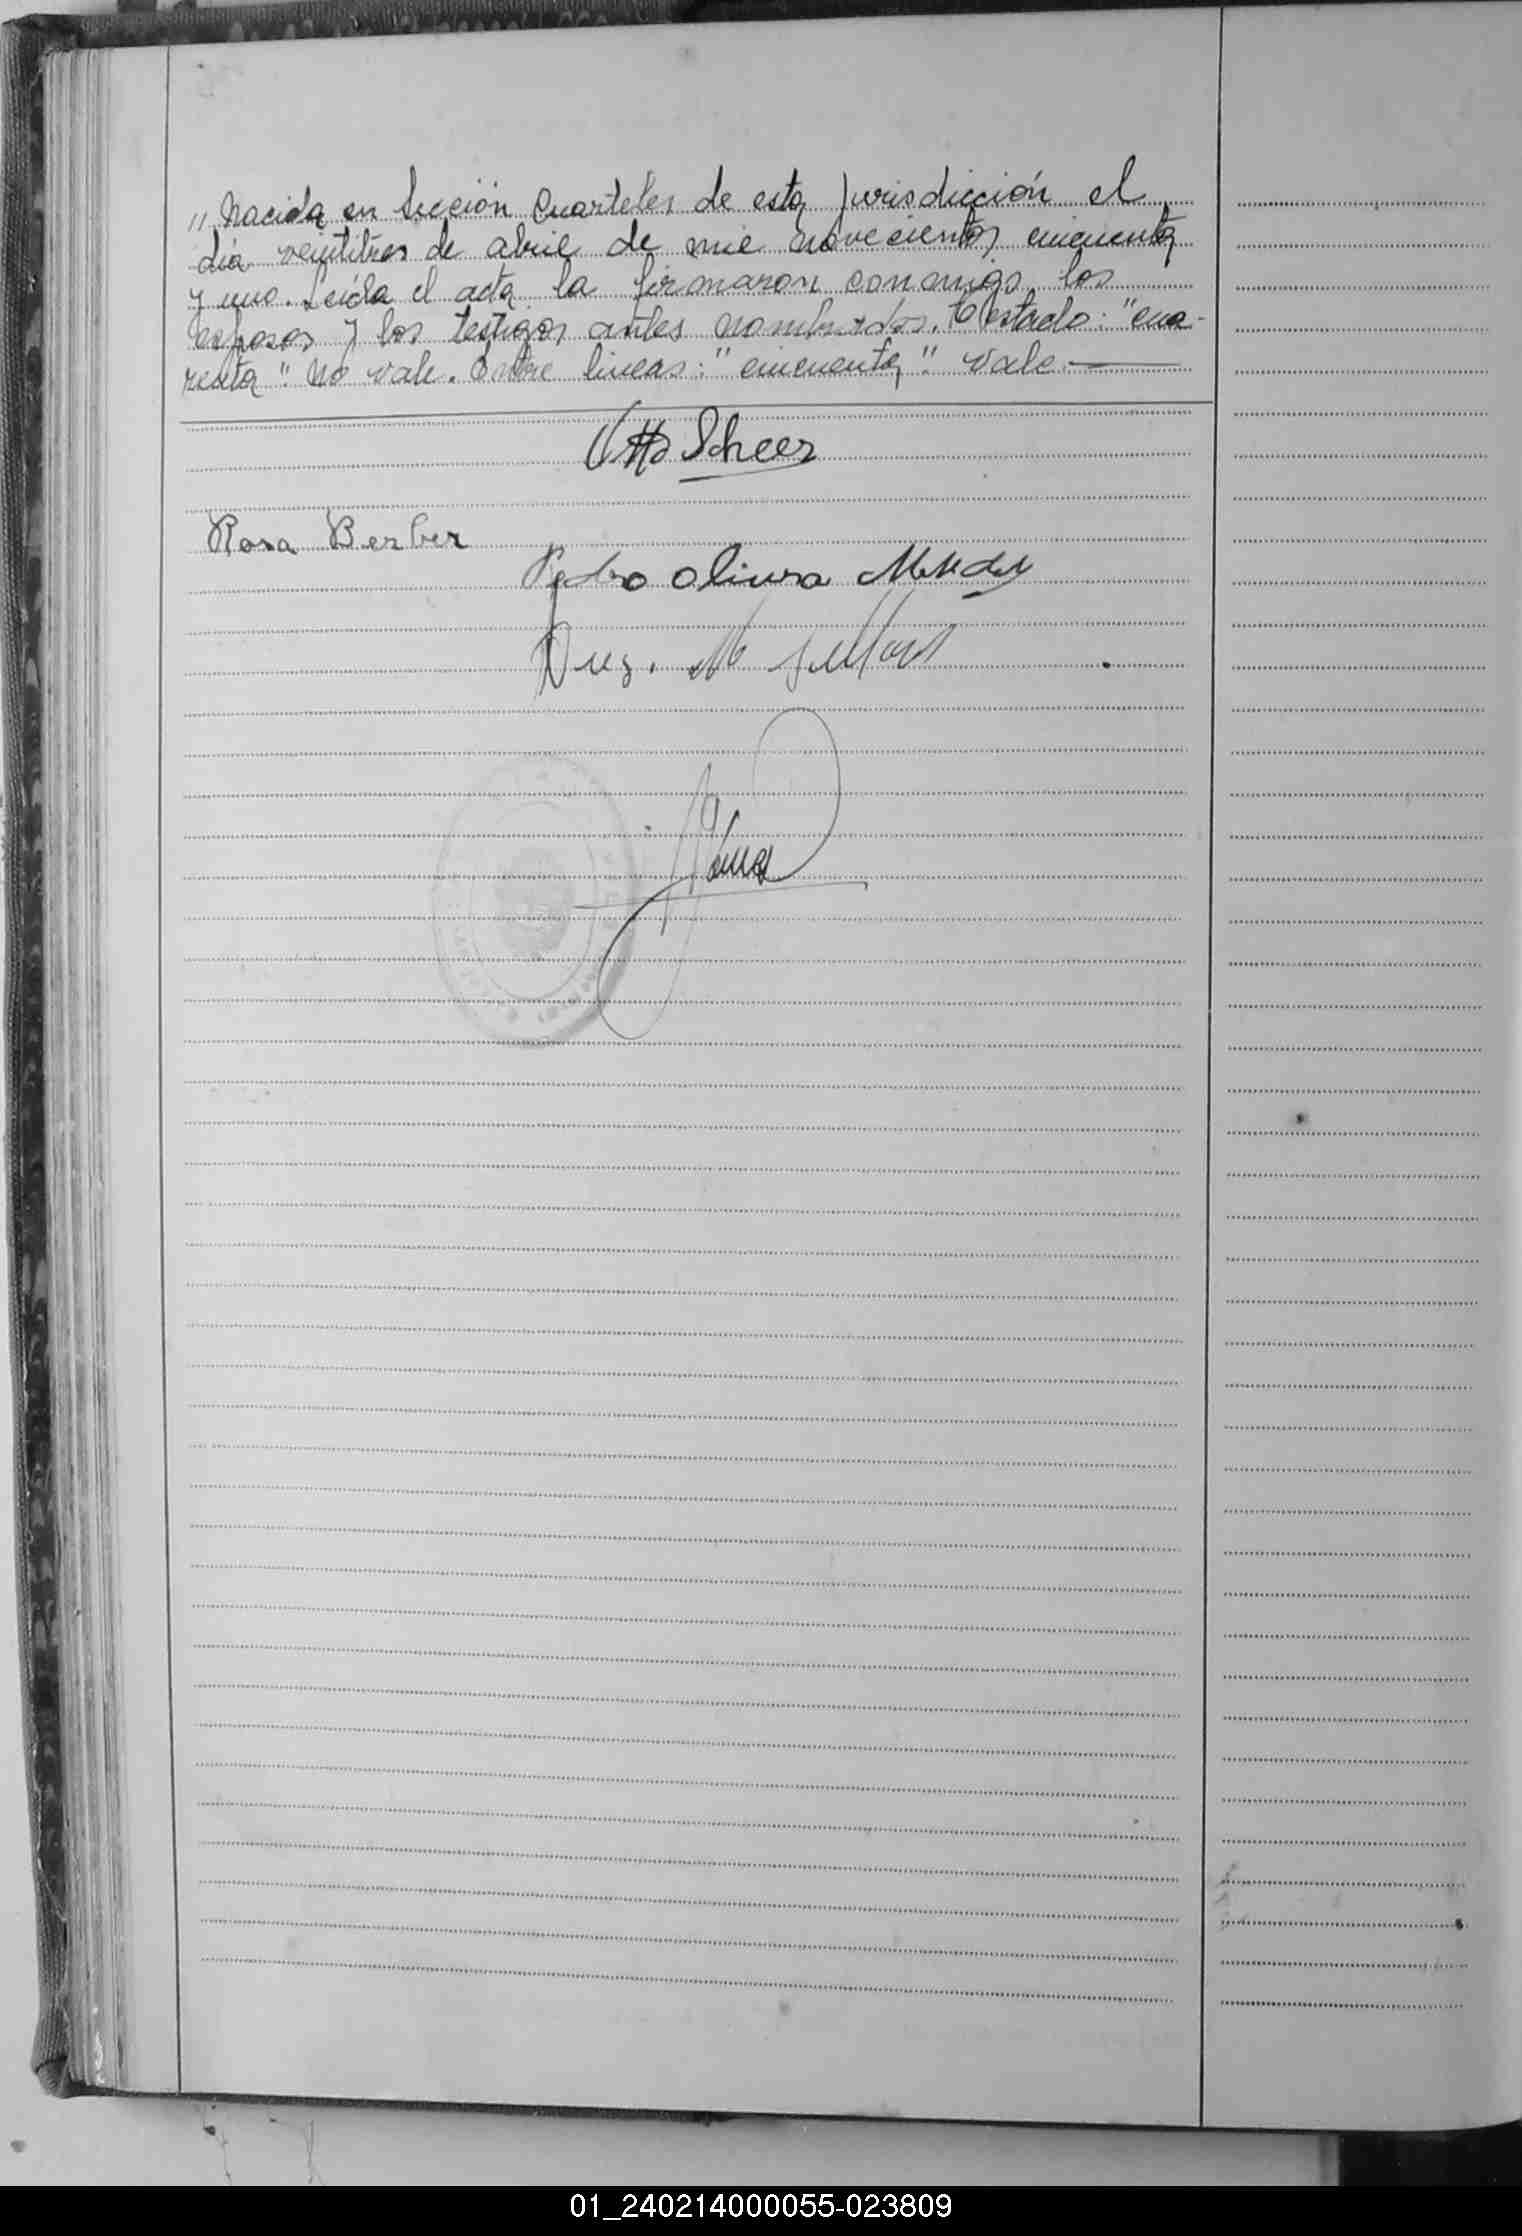 " Nacida en Sección Cuarteles de esta jurisdicción el
día veintitres de abril de mil novecientos cincuenta
y uno. Leída el acta la firmaron conmigo los
esposos y los testigos antes nombrados. Testado: "cua-
renta". No vale. Entre lineas: "cincuenta". Vale
Otto Scheer
Rosa Berber
Pedro Olivera
01_240214000055-023809